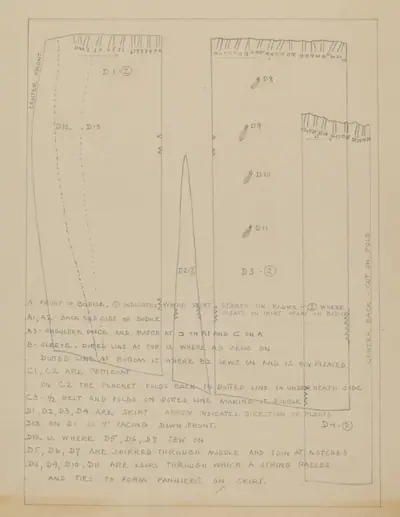 CENTER FRONT
D1-②
D12
D13
D8
D9
D10
D11
D2②
D3-②
CENTER BACK CUT ON FOLD
D4-②
A FRONT OF BODICE. ① INDICATES WHERE SKIRT STARTS ON BODICE - ② WHERE
PLEATS IN SKIRT START ON BODICE
A1, A2 BACK AND SIDE OF BODICE
A3 - SHOULDER PIECE AND MATCH AT AND C ON A
B - SLEEVE. DOTTED LINE AT TOP IS WHERE A3 SEWS ON
DOTTED LINE AT BOTTOM IS WHERE B2 SEWS ON AND IS BOX PLEATED
C1, C2 ARE PETTICOAT
ON C2 THE PLACKET FOLDS BACK ON DOTTED LINE IN UNDERNEATH SIDE
C3 - ½ BELT AND FOLDS ON DOTTED LINE MAKING IT DOUBLE
D1, D2, D3, D4 ARE SKIRT ARROW INDICATES DIRECTION OF PLEATS
D13 ON D1 IS FACING DOWN FRONT.
D12 IS WHERE D5, D6, D7 SEW ON
D5, D6, D7 ARE SHIRRED THROUGH MIDDLE AND JOIN AT NOTCHES
D8, D9, D10, D11 ARE THROUGH WHICH A STRING PASSES
AND TIES TO FORM PANNIERS ON SKIRT.